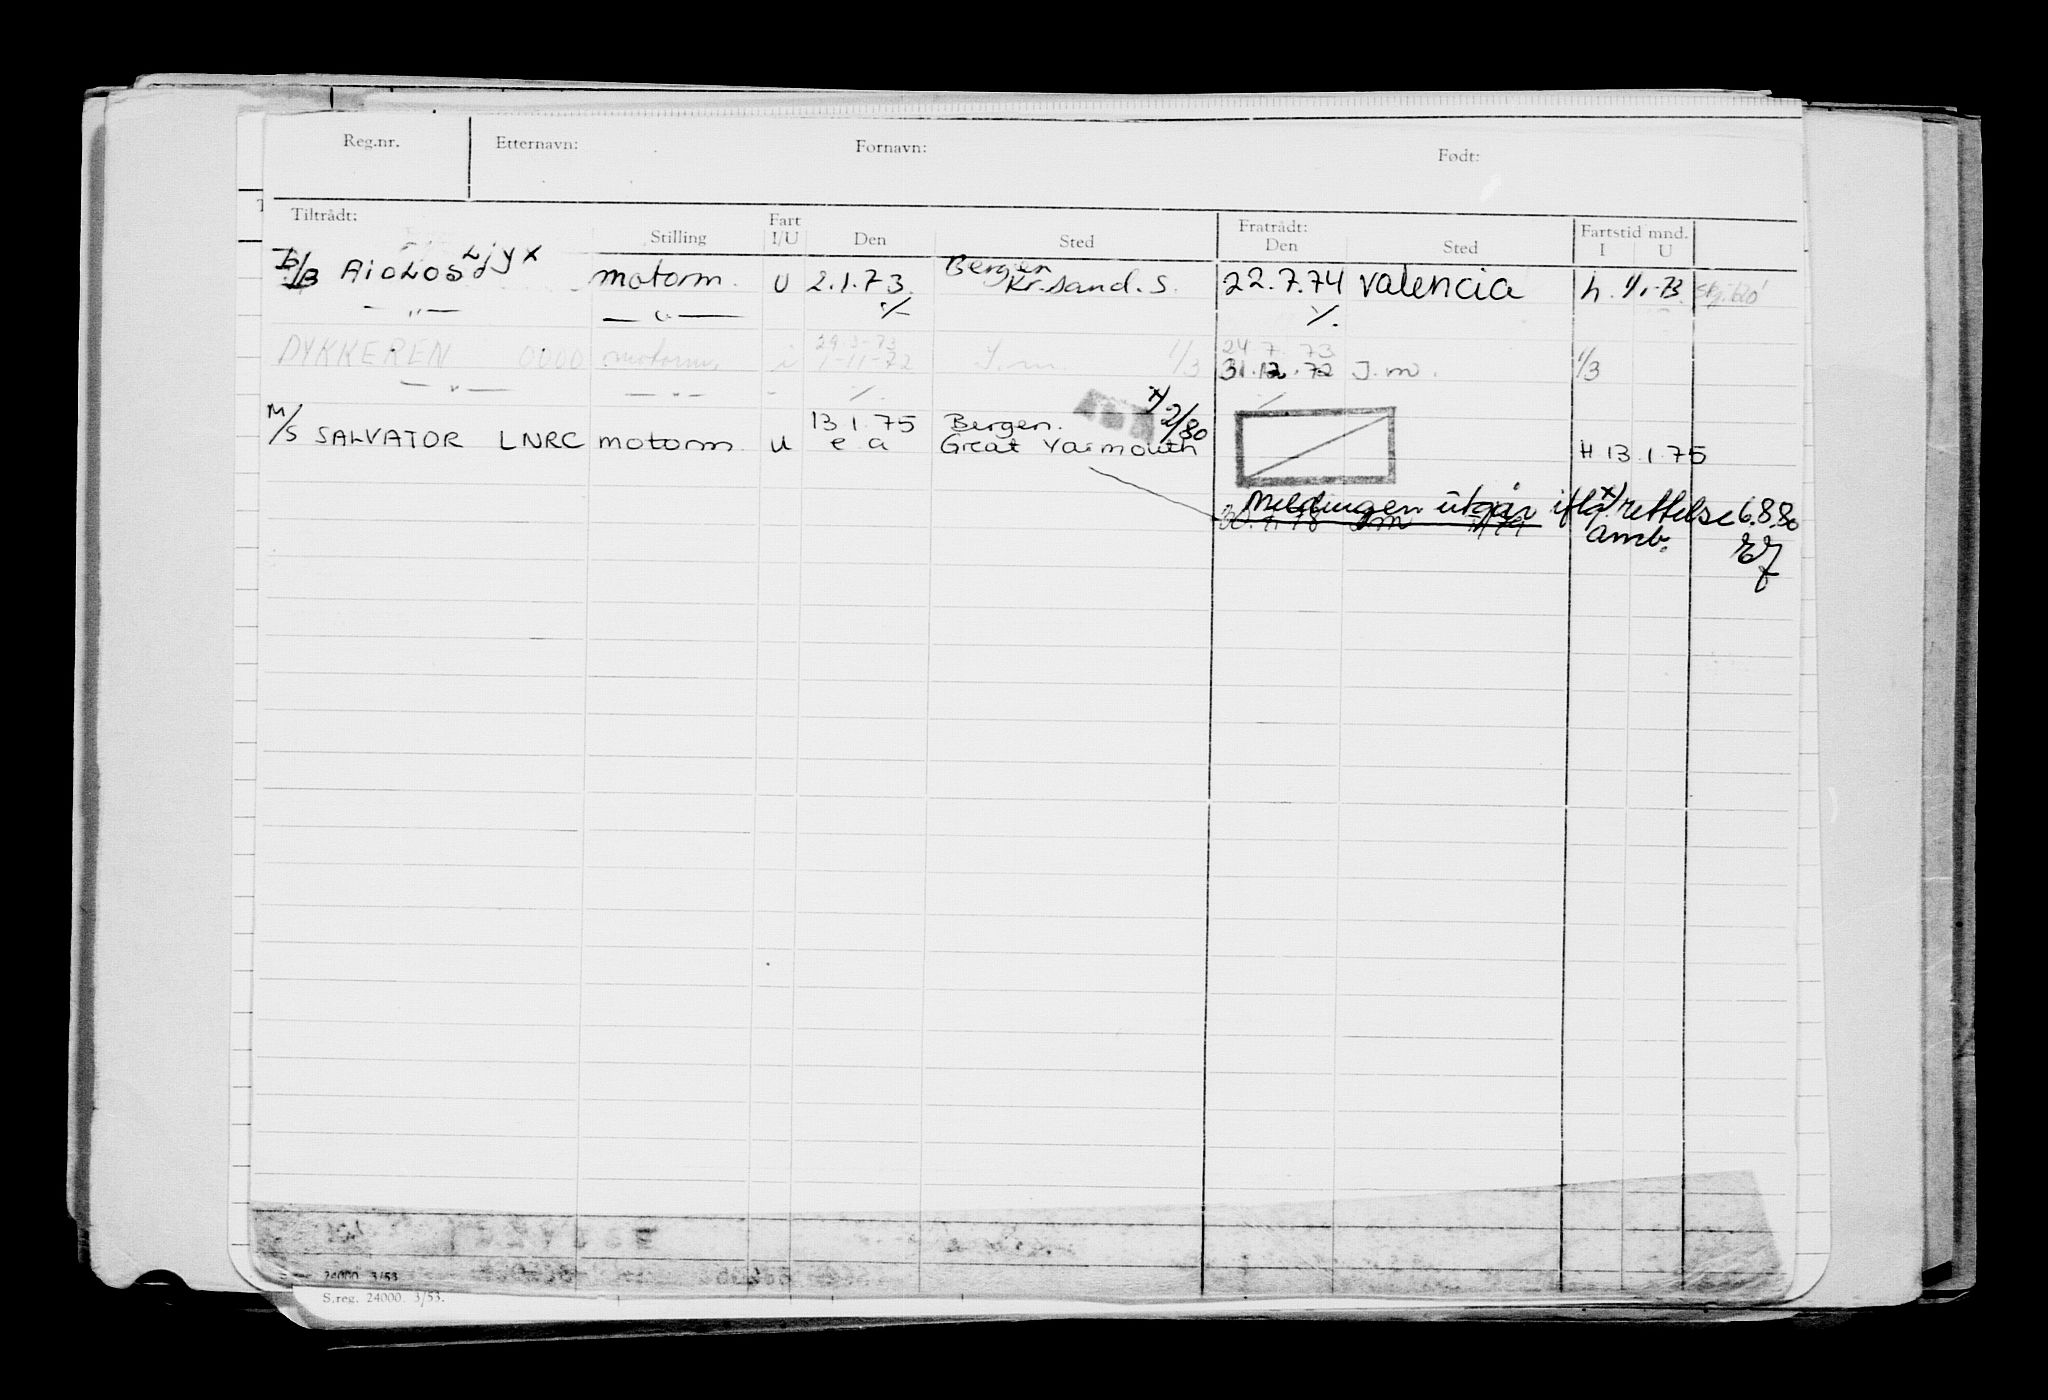 Reg.nr. Etternavn: Fornavn: Født:
Tiltrådt: Stilling Fart I/U Den Sted Fratrådt: Den Sted Fartstid mnd. I U
AIOLOS LJYX motorm. U 2.1.73. Bergen Kr.sand.S. 22.7.74 Valencia h.
— " — — " — ./. ./.
DYKKEREN 0000 motorm. i 29-3-73 1-11-72 J.m. 1/3 24.7.73 31.12.72 J.m. 1/3
— " — — " — " ./.
M/S SALVATOR LNRC motorm U 13.1.75 e.a Bergen. Great Yarmouth x/ 2/80 H 13.1.75
Meldingen utgår iflg x) rettelse 6.8.80
J.m
amb.
24000. 3/53
S.reg. 24000. 3/53.